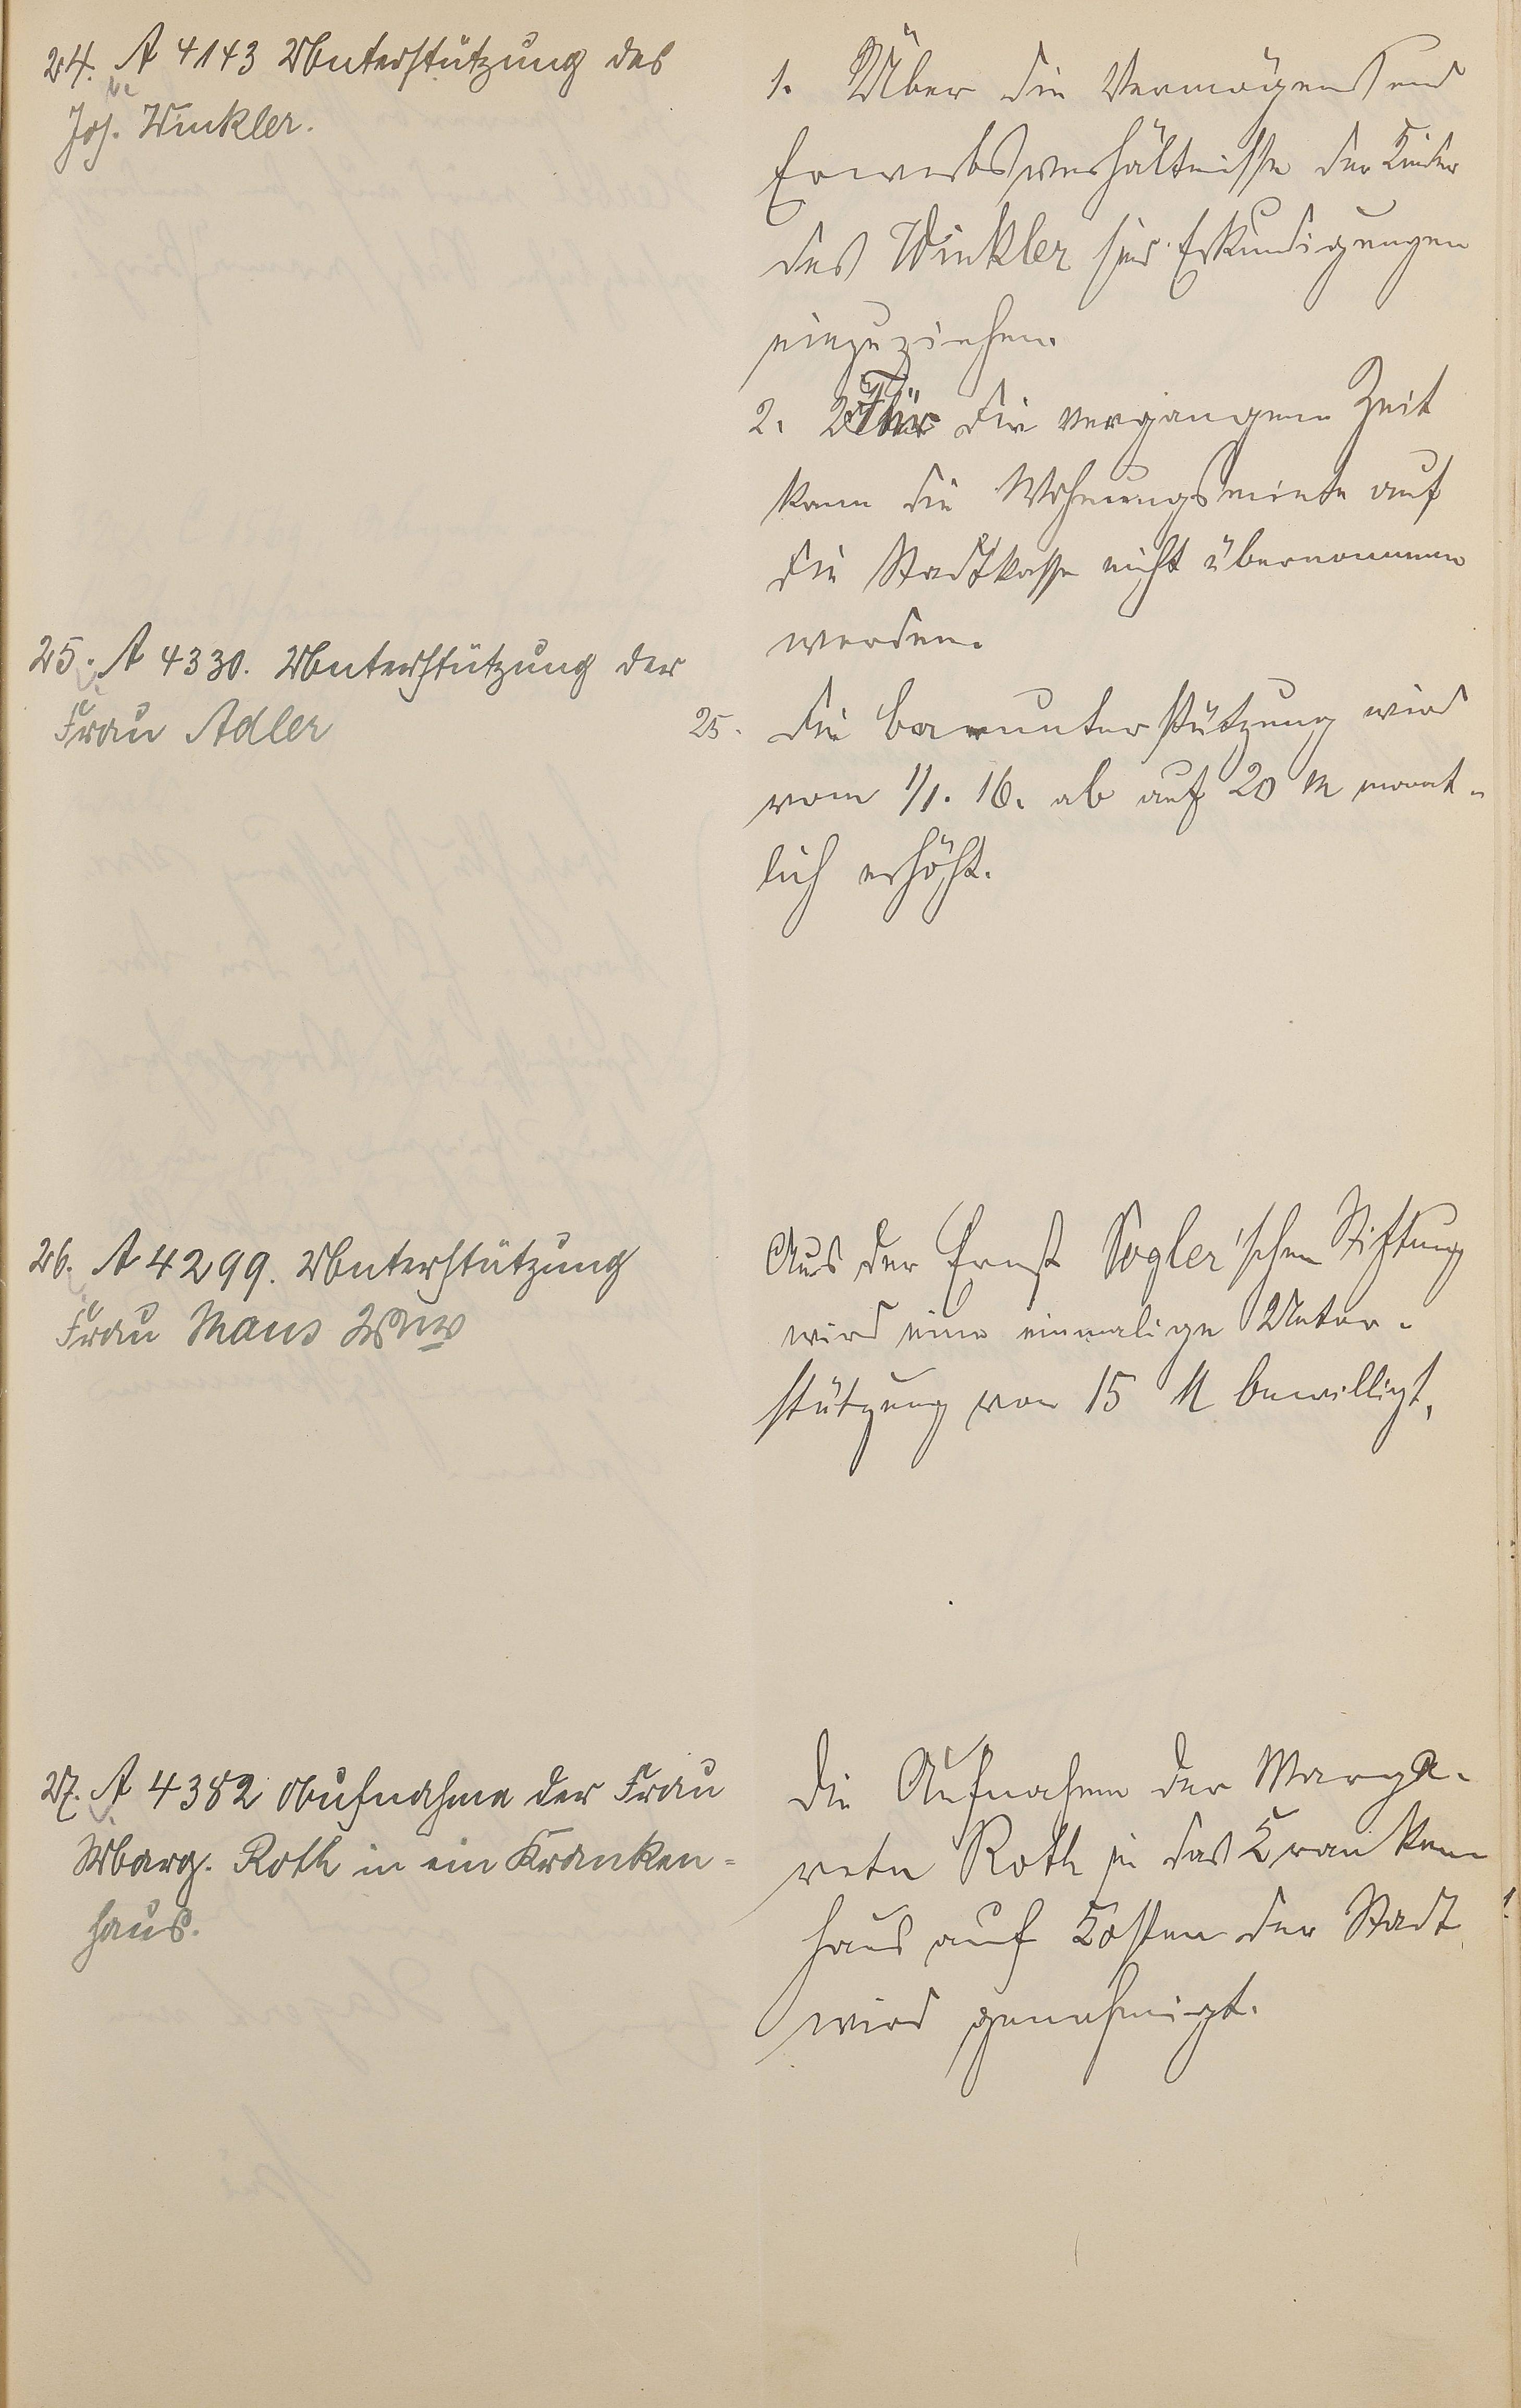 24. A 4143 Unterstützung des
Jos. Winkler.
1. Über die Vermögens und
Erwerbsverhältnisse der Kinder
des Winkler sind Erkundigungen
einzuziehen.
2. Für die vergangene Zeit
kann die Wohnungsmiete auf
die Stadtkasse nicht übernommen
werden.
25. A 4330. Unterstützung der
Frau Adler
25. Die Barunterstützung wird
vom 1/1. 16. ab auf 20 M monat-
lich erhöht.
26. A 4299. Unterstützung
Frau Maus Wwe
Aus der Ernst Vogler'schen Stiftung
wird eine einmalige Unter-
stützung von 15 M bewilligt.
27. A 4382 Aufnahme der Frau
Marg. Roth in ein Kranken=
haus.
Die Aufnahme der Marga-
rete Roth in das Kranken
haus auf Kosten der Stadt
wird genehmigt.